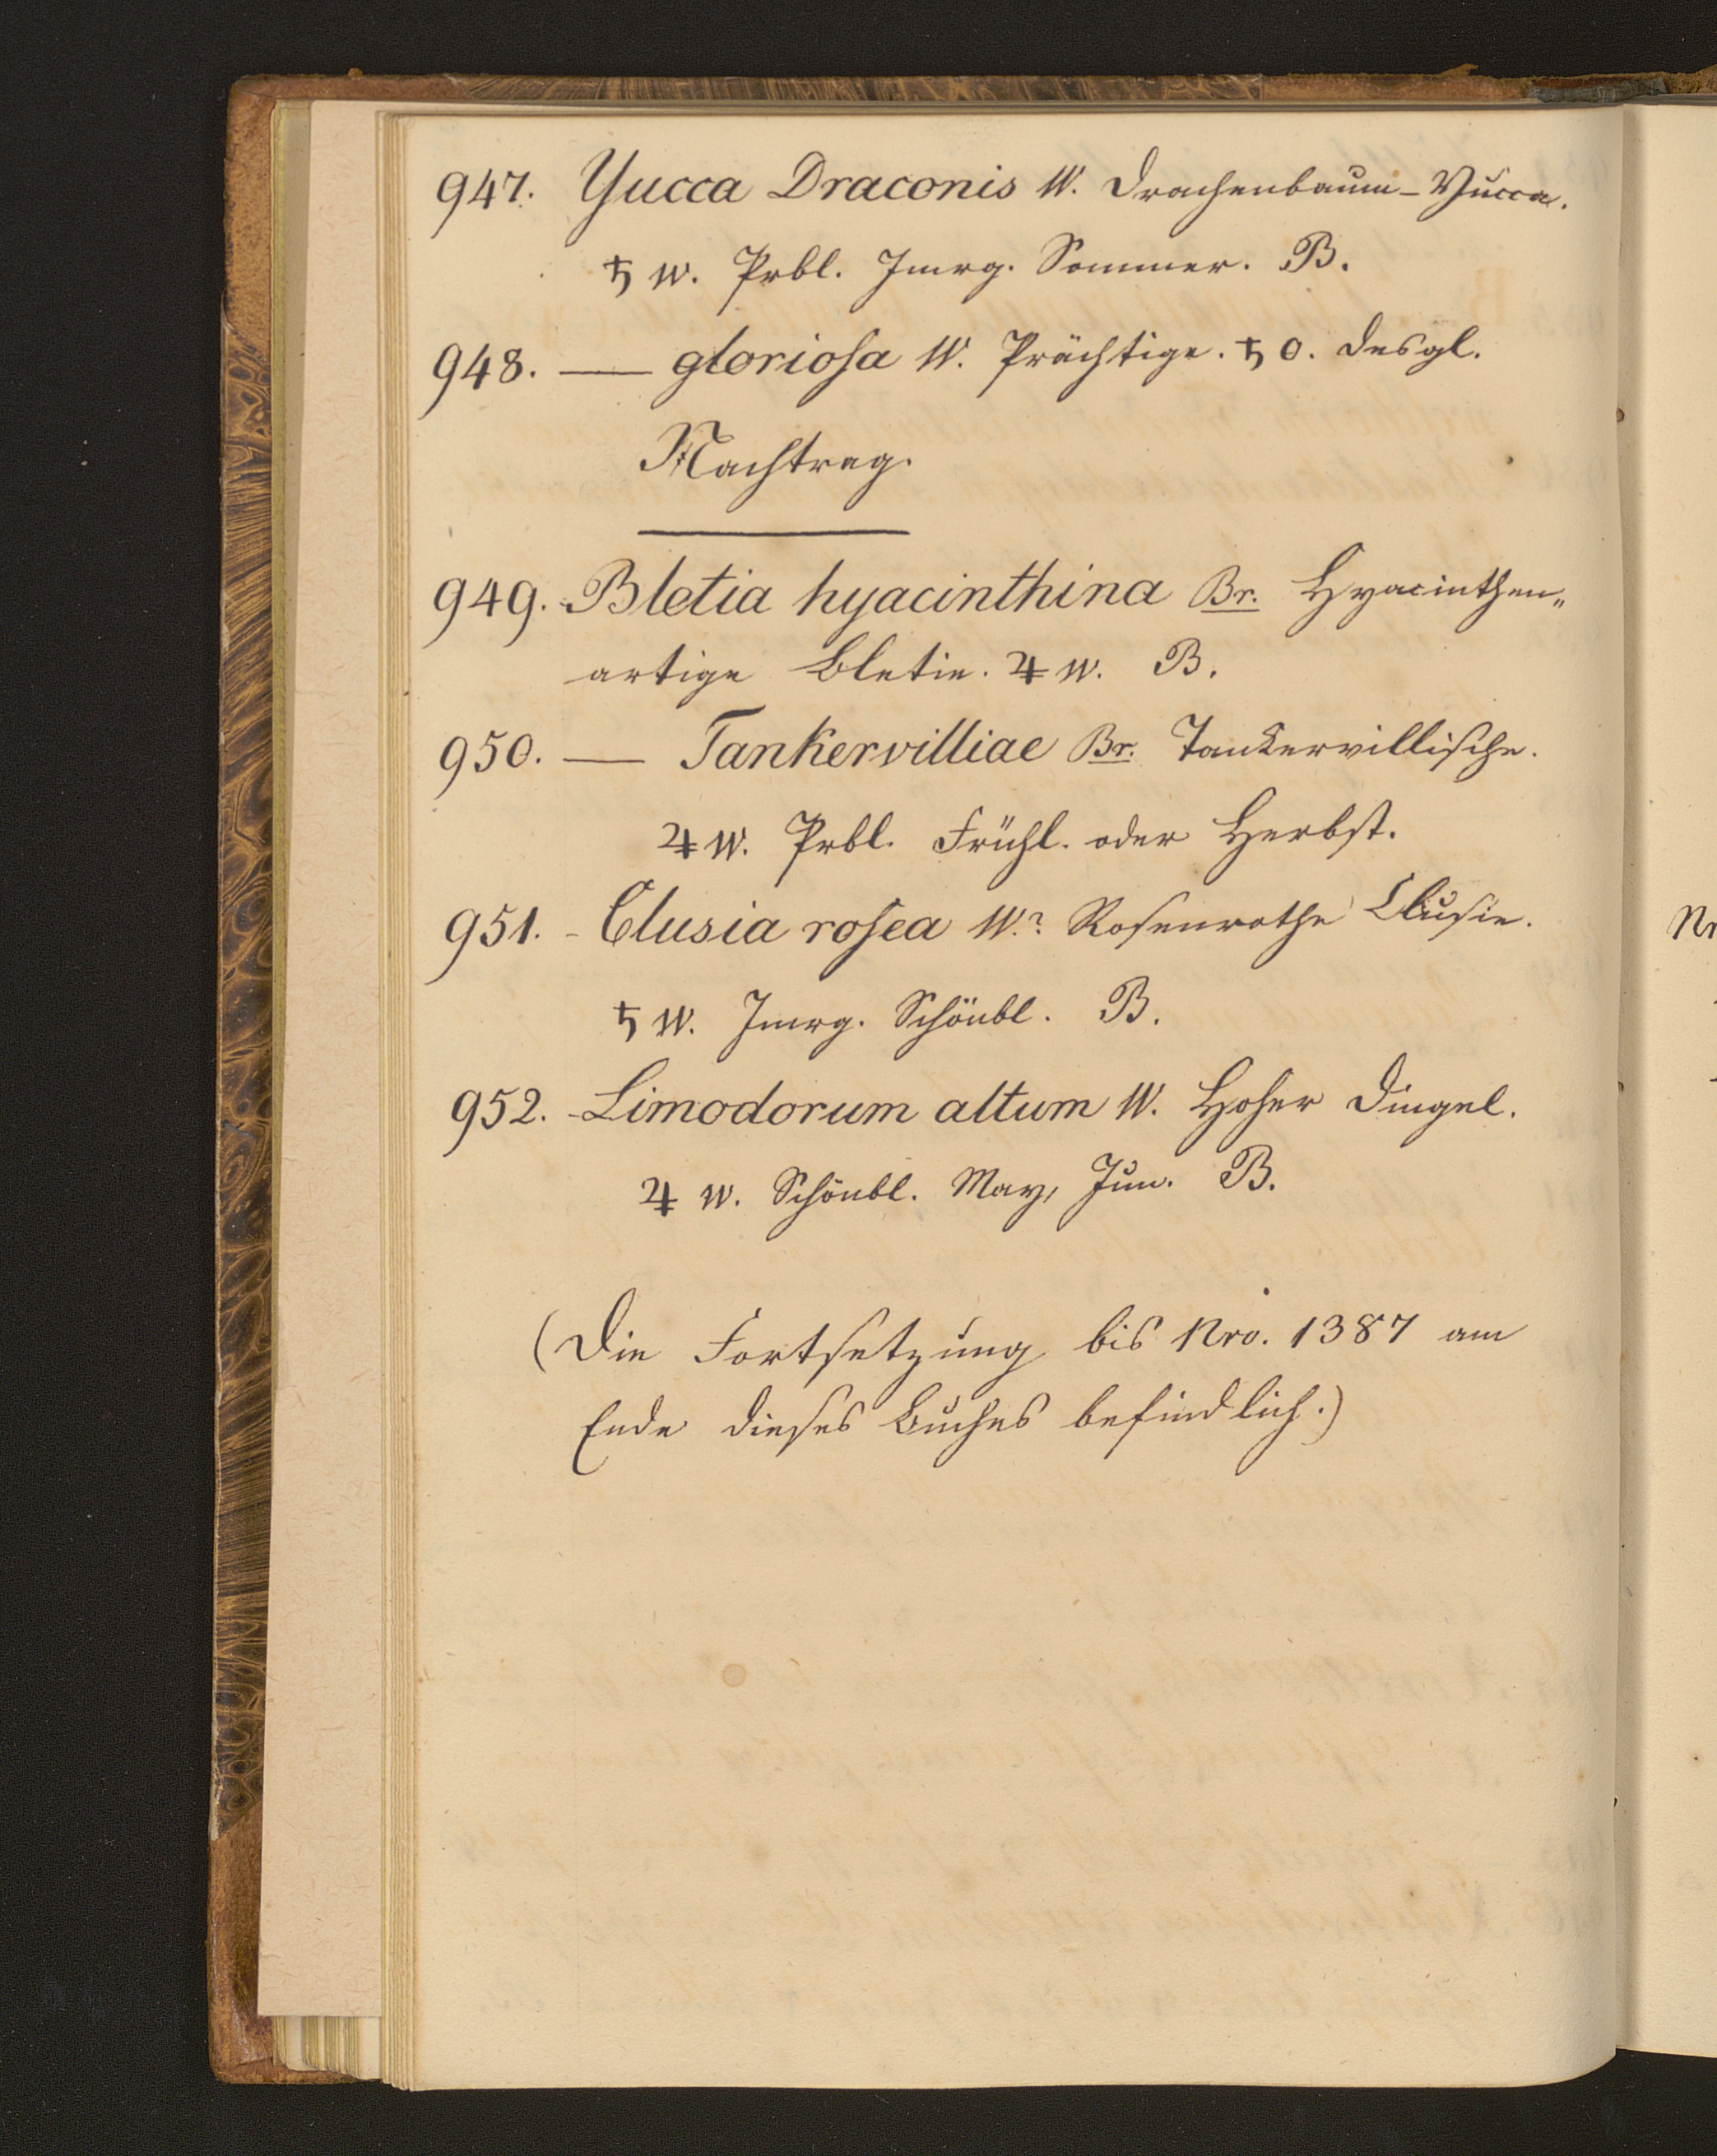 947. Yucca Draconis W. Drachenbaum-Yucca.
♄ w. Prbl. Jmrg. Sommer. B.
948. — glorioſa W. Prächtige. ♄ o. desgl.
Nachtrag.
949. Bletia hyacinthina Br. Hyacinthen„
artige Bletie. ♃ w. B.
950. — Tankervilliae Br. Tankervillische.
♃ w. Prbl. Frühl. oder Herbst.
951. - Clusia roſea W.? Rosenrothe Clusie.
♄ w. Jmrg. Schönbl. B.
952. - Limodorum altum W. Hoher Dingel.
♃ w. Schönbl. May, Jun. B.
(Die Fortsetzung bis Nro. 1387 am
Ende dieses Buches befindlich.)